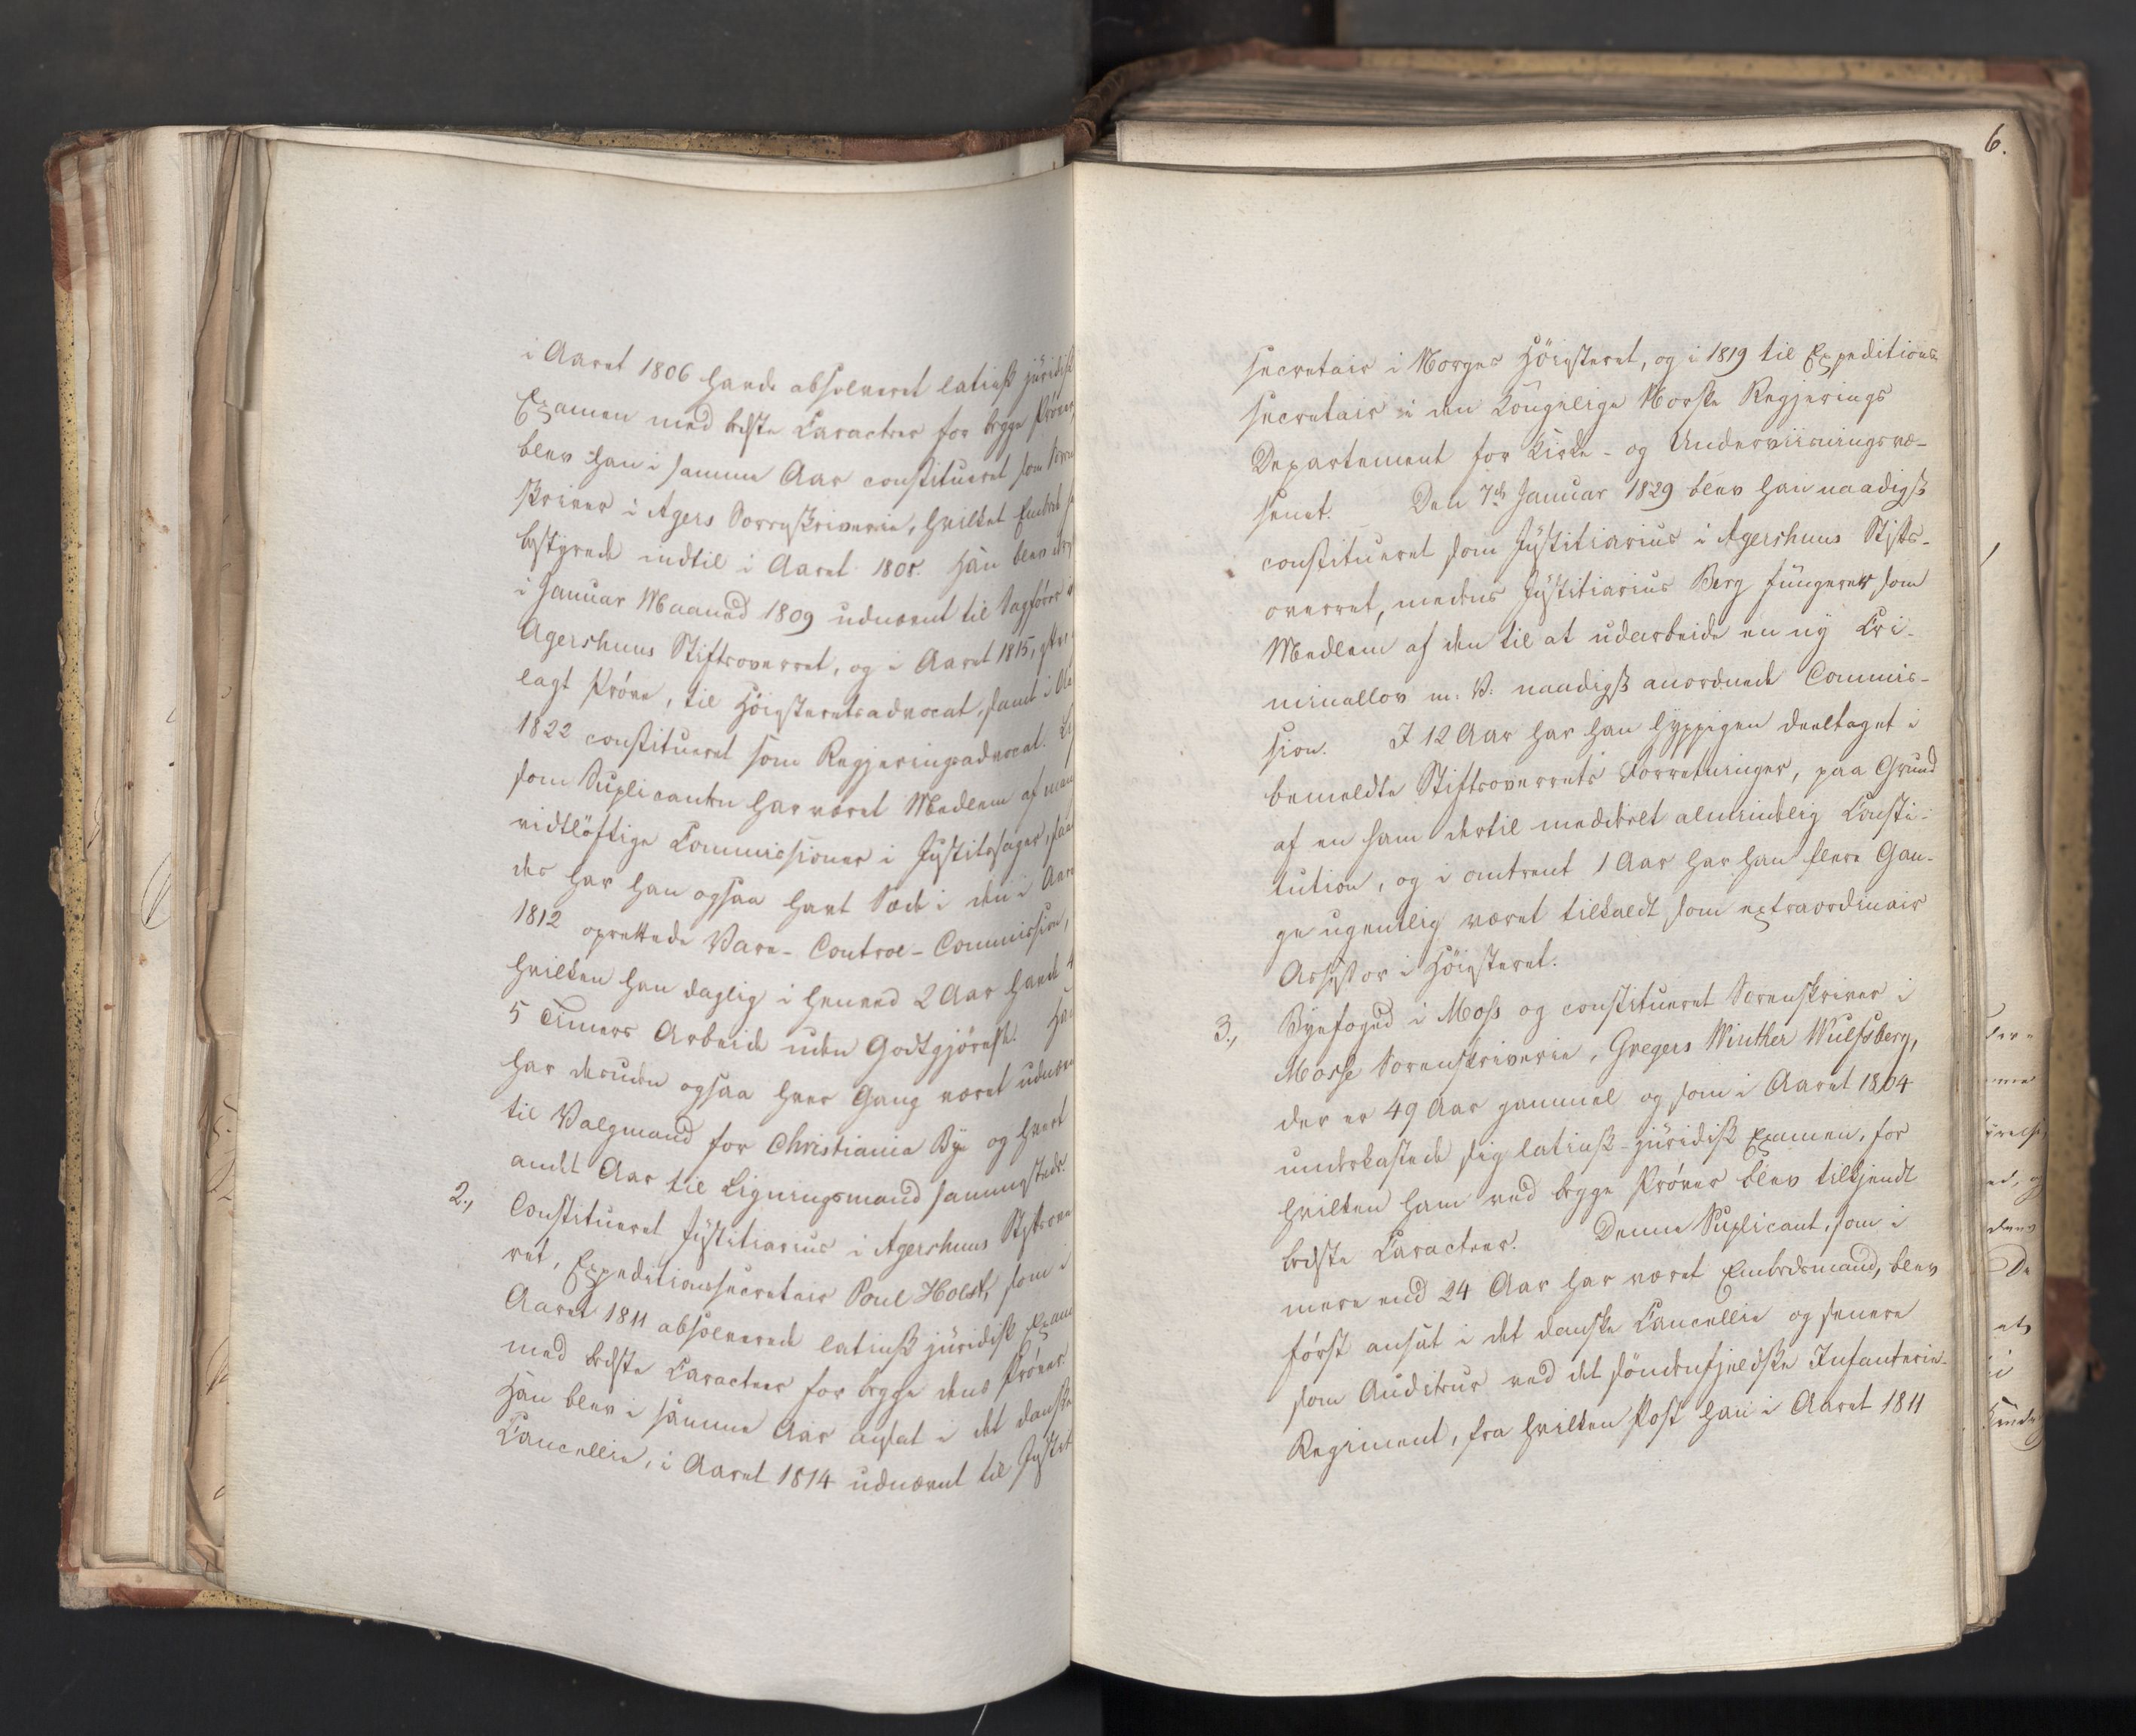 i Aaret 1806 havde absolveret latinsk juridisk
Examen med bedste Caracteer for begge Prøver,
blev han i samme Aar constitueret som Soren
skriver i Agers Sorenskriverie, hvilket Embede
bestyrede indtil i Aaret 1808. Han blev
i Januar Maaned 1809 udnævnt til Sagfører
Agershuus Stiftsoverret, og i Aaret 1815, efter
lagt Prøve, til Høiesteretsadvocat, samt i
1822 constitueret som Regjeringsadvocat.
som Suplicanten har været Medlem af
vidtløftige Commissioner i Justitssager,
des har han ogsaa havt Sæde i den i Aaret
1812 oprettede Vare-Control-Commission,
hvilken han daglig i henved 2 Aar havde 4
5 Timers Arbeide uden Godtgjørelse. Han
har desuden ogsaa hver Gang været udnævnt
til Valgmand for Christiania Bye og hvert
andet Aar til Ligningsmand sammesteds.
2., Constitueret Justitiarius i Agershuus Stiftsover
ret, Expeditionssecretair Poul Holst, som i
Aaret 1811 absolverede latinsk juridisk Exam
med bedste Caracteer for begge dens Prøver.
Han blev i samme Aar ansat i det danske
Cancellie, i Aaret 1814 udnævnt til Justits
6.
secretair i Norges Høiesteret, og i 1819 til Expeditions
secretair i den Kongelige Norske Regjerings
Departement for Kirke- og Underviisningsvæ-
senet. Den 7de Januar 1829 blev han naadigst
constitueret som Justitiarius i Agershuus Stifts-
overret, medens Justitiarius Berg fungerer som
Medlem af den til at udarbeide en ny Cri-
minallov m: V: naadigst anordnede Commis-
sion. I 12 Aar har han hyppigen deeltaget i
bemeldte Stiftsoverrets Forretninger, paa Grund
af en ham dertil meddeelt almindelig Consti-
tution, og i omtrent 1 Aar har han flere Gan-
ge ugentlig været tilkaldt som extraordinair
Assessor i Høiesteret.
3., Byefoged i Moss og constitueret Sorenskriver i
Mosse Sorenskriverie, Gregers Winther Wulfsberg,
der er 49 Aar gammel og som i Aaret 1804
underkastede sig latinsk-juridisk Examen, for
hvilken ham ved begge Prøver blev tilkjendt
bedste Caracteer. Denne Suplicant, som i
mere end 24 Aar har været Embedsmand, blev
først ansat i det danske Cancellie og senere
som Auditeur ved det søndenfjeldske Infanterie-
Regiment, fra hvilken Post han i Aaret 1811